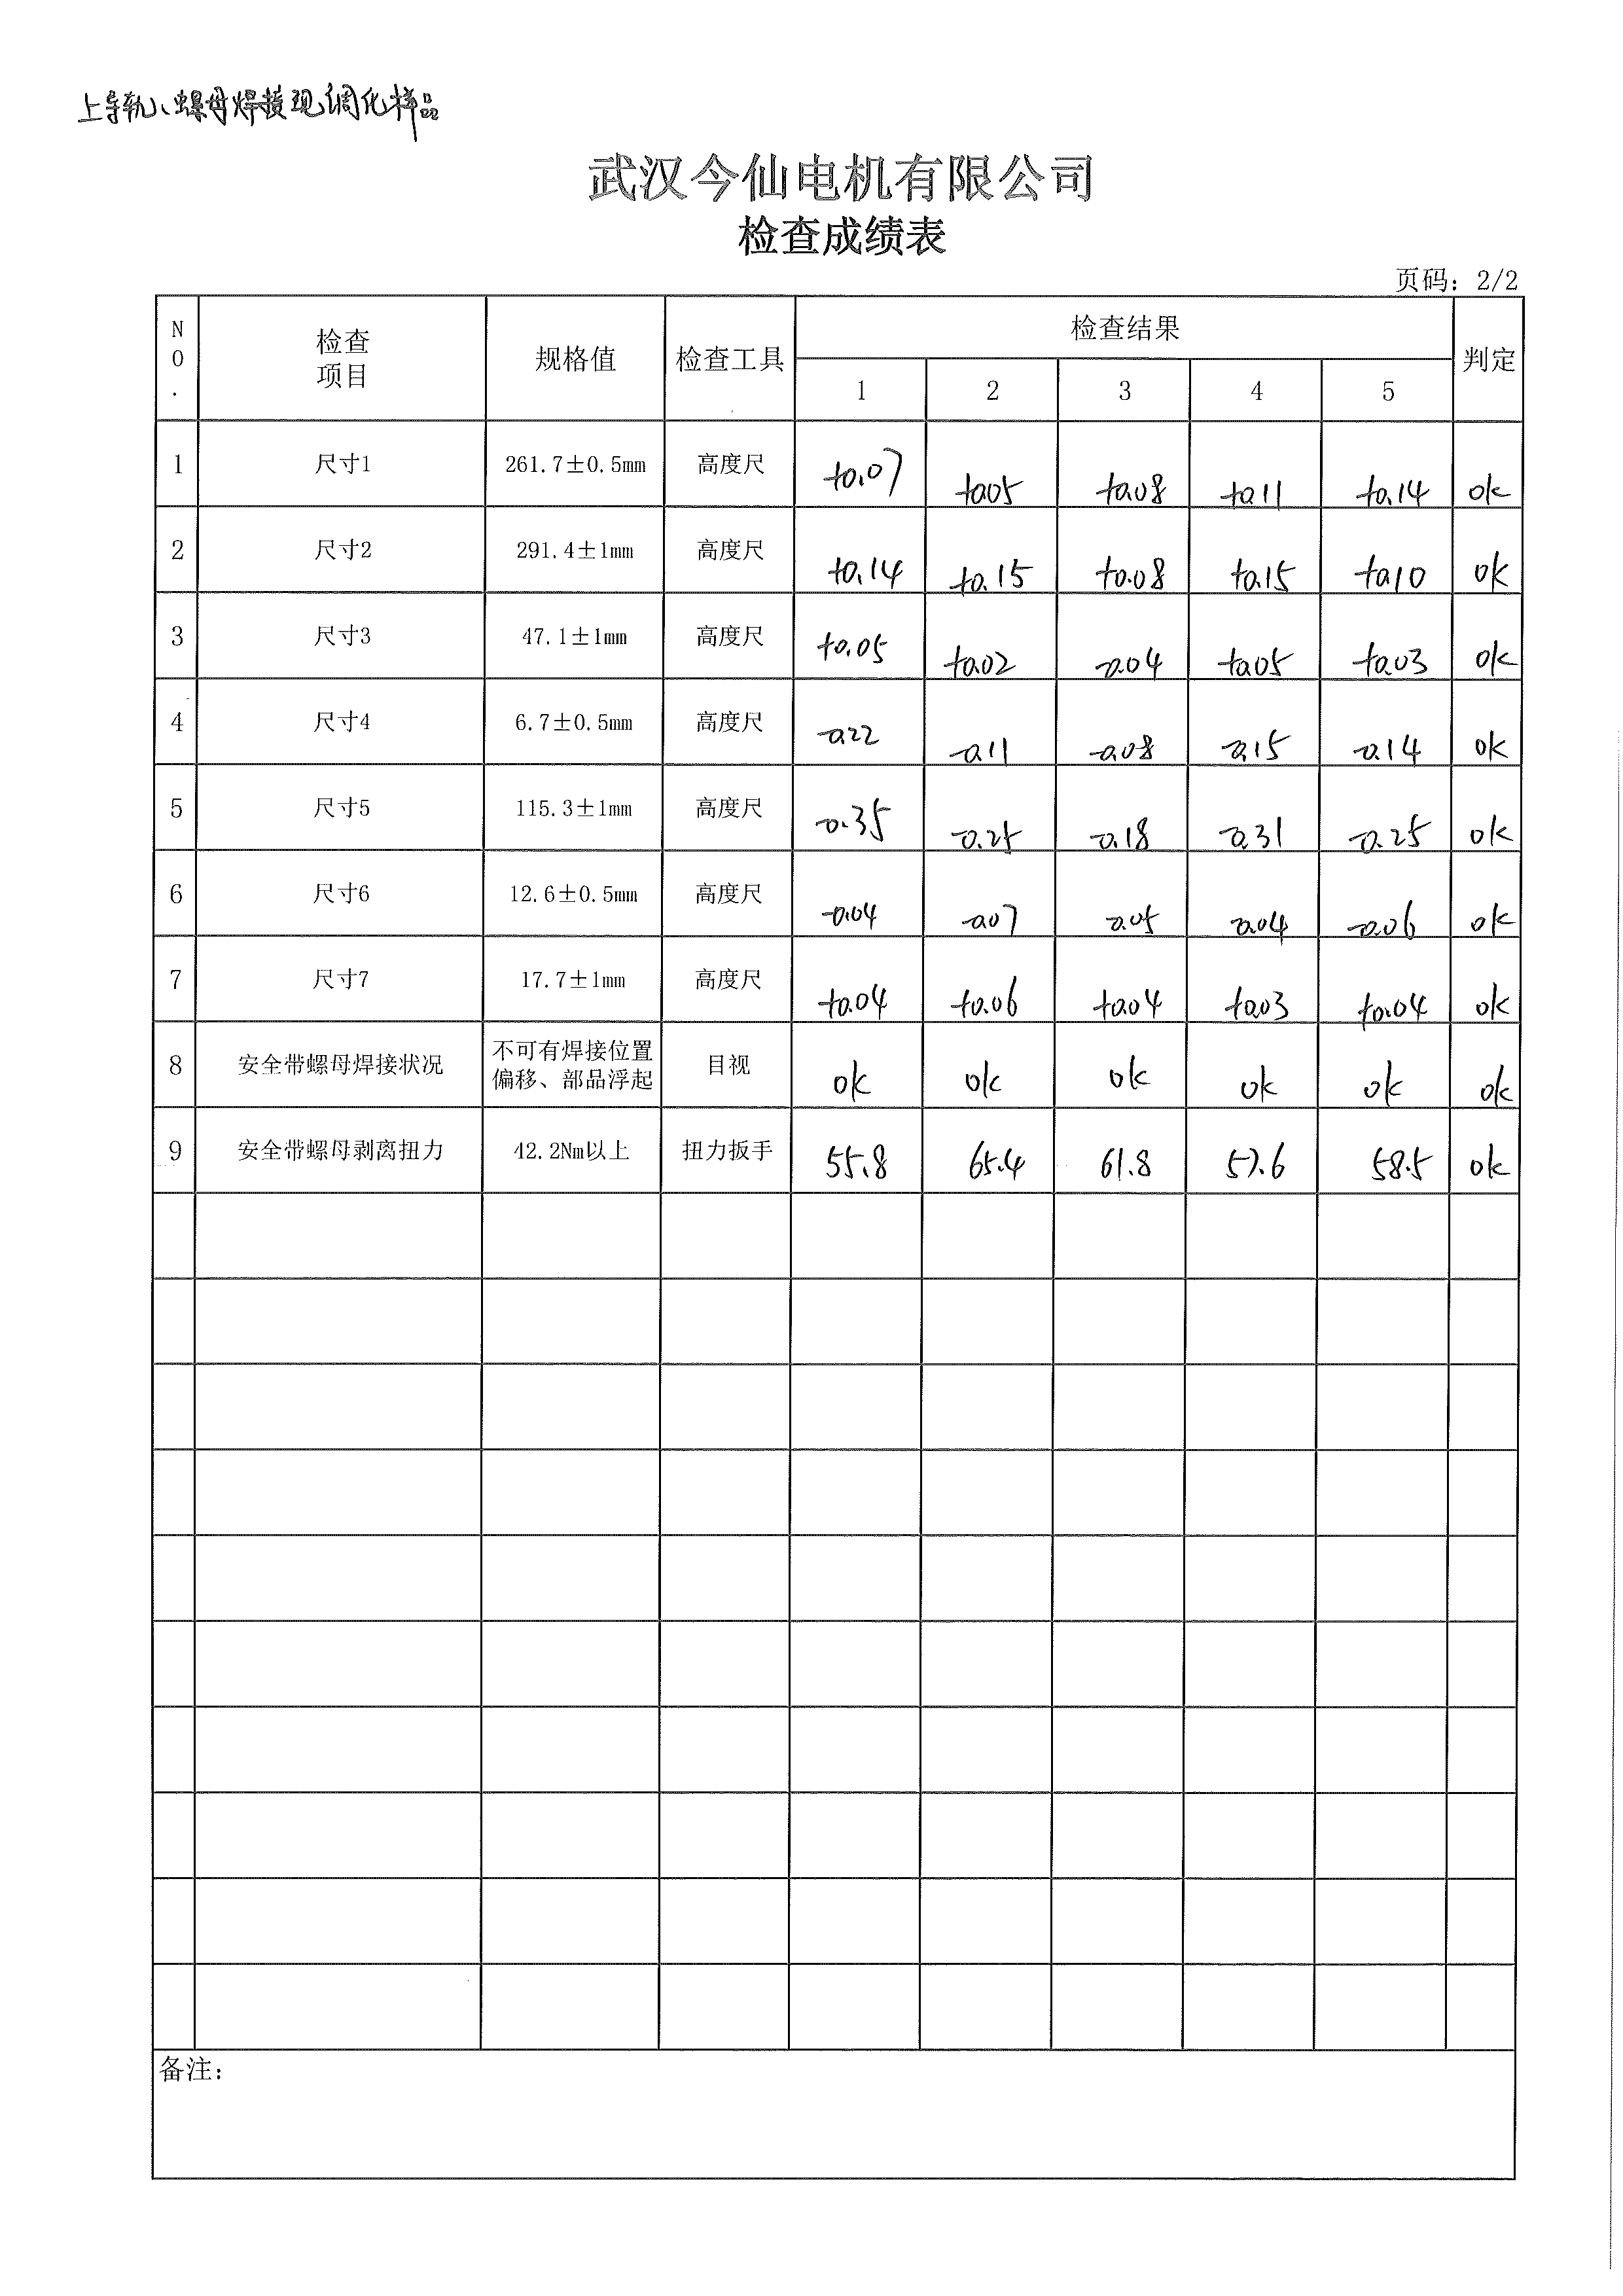 上导轨、螺母焊接现调化样品
武汉今仙电机有限公司
检查成绩表
页码：2/2
NO. 检查项目 规格值 检查工具 检查结果 判定
1 2 3 4 5
1 尺寸1 261.7±0.5mm 高度尺 +0.07 +0.05 +0.08 +0.11 +0.14 ok
2 尺寸2 291.4±1mm 高度尺 +0.14 +0.15 +0.08 +0.15 +0.10 ok
3 尺寸3 47.1±1mm 高度尺 +0.05 +0.02 -0.04 +0.05 +0.03 ok
4 尺寸4 6.7±0.5mm 高度尺 -0.22 -0.11 -0.08 -0.15 -0.14 ok
5 尺寸5 115.3±1mm 高度尺 -0.35 -0.25 -0.18 -0.31 -0.25 ok
6 尺寸6 12.6±0.5mm 高度尺 -0.04 -0.07 -0.05 -0.04 -0.06 ok
7 尺寸7 17.7±1mm 高度尺 +0.04 +0.06 +0.04 +0.03 +0.04 ok
8 安全带螺母焊接状况 不可有焊接位置偏移、部品浮起 目视 ok ok ok ok ok ok
9 安全带螺母剥离扭力 42.2Nm以上 扭力扳手 55.8 65.4 61.8 57.6 58.5 ok
备注：